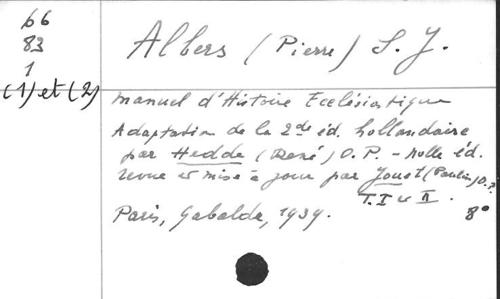 66
83
1
(1) et (2)
Albers (Pierre) S. J.
Manuel d'Histoire Ecclésiastique
Adaptation de la 2de éd. hollandaise
par Hedde (René) O. P. - nolle éd.
revue et mise à jour par Jouet (Paulin) O. P.
T. I et II.
Paris, Gabalda, 1939. 8°